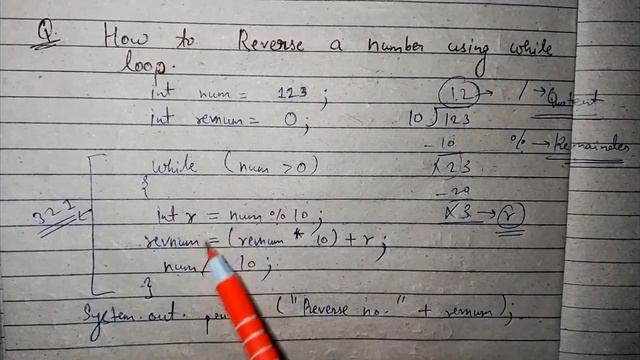 Q. How to Reverse a number using while
loop.
int num = 123 ;
int revnum = 0;
while (num >0)
{
int r = num % 10 ;
revnum = (revnum * 10) + r ;
num / 10 ;
}
System.out. ("Reverse no." + revnum);
321
12 → / → Quotent
10)123
-10 % → Remainder
x23
-20
x3 → r